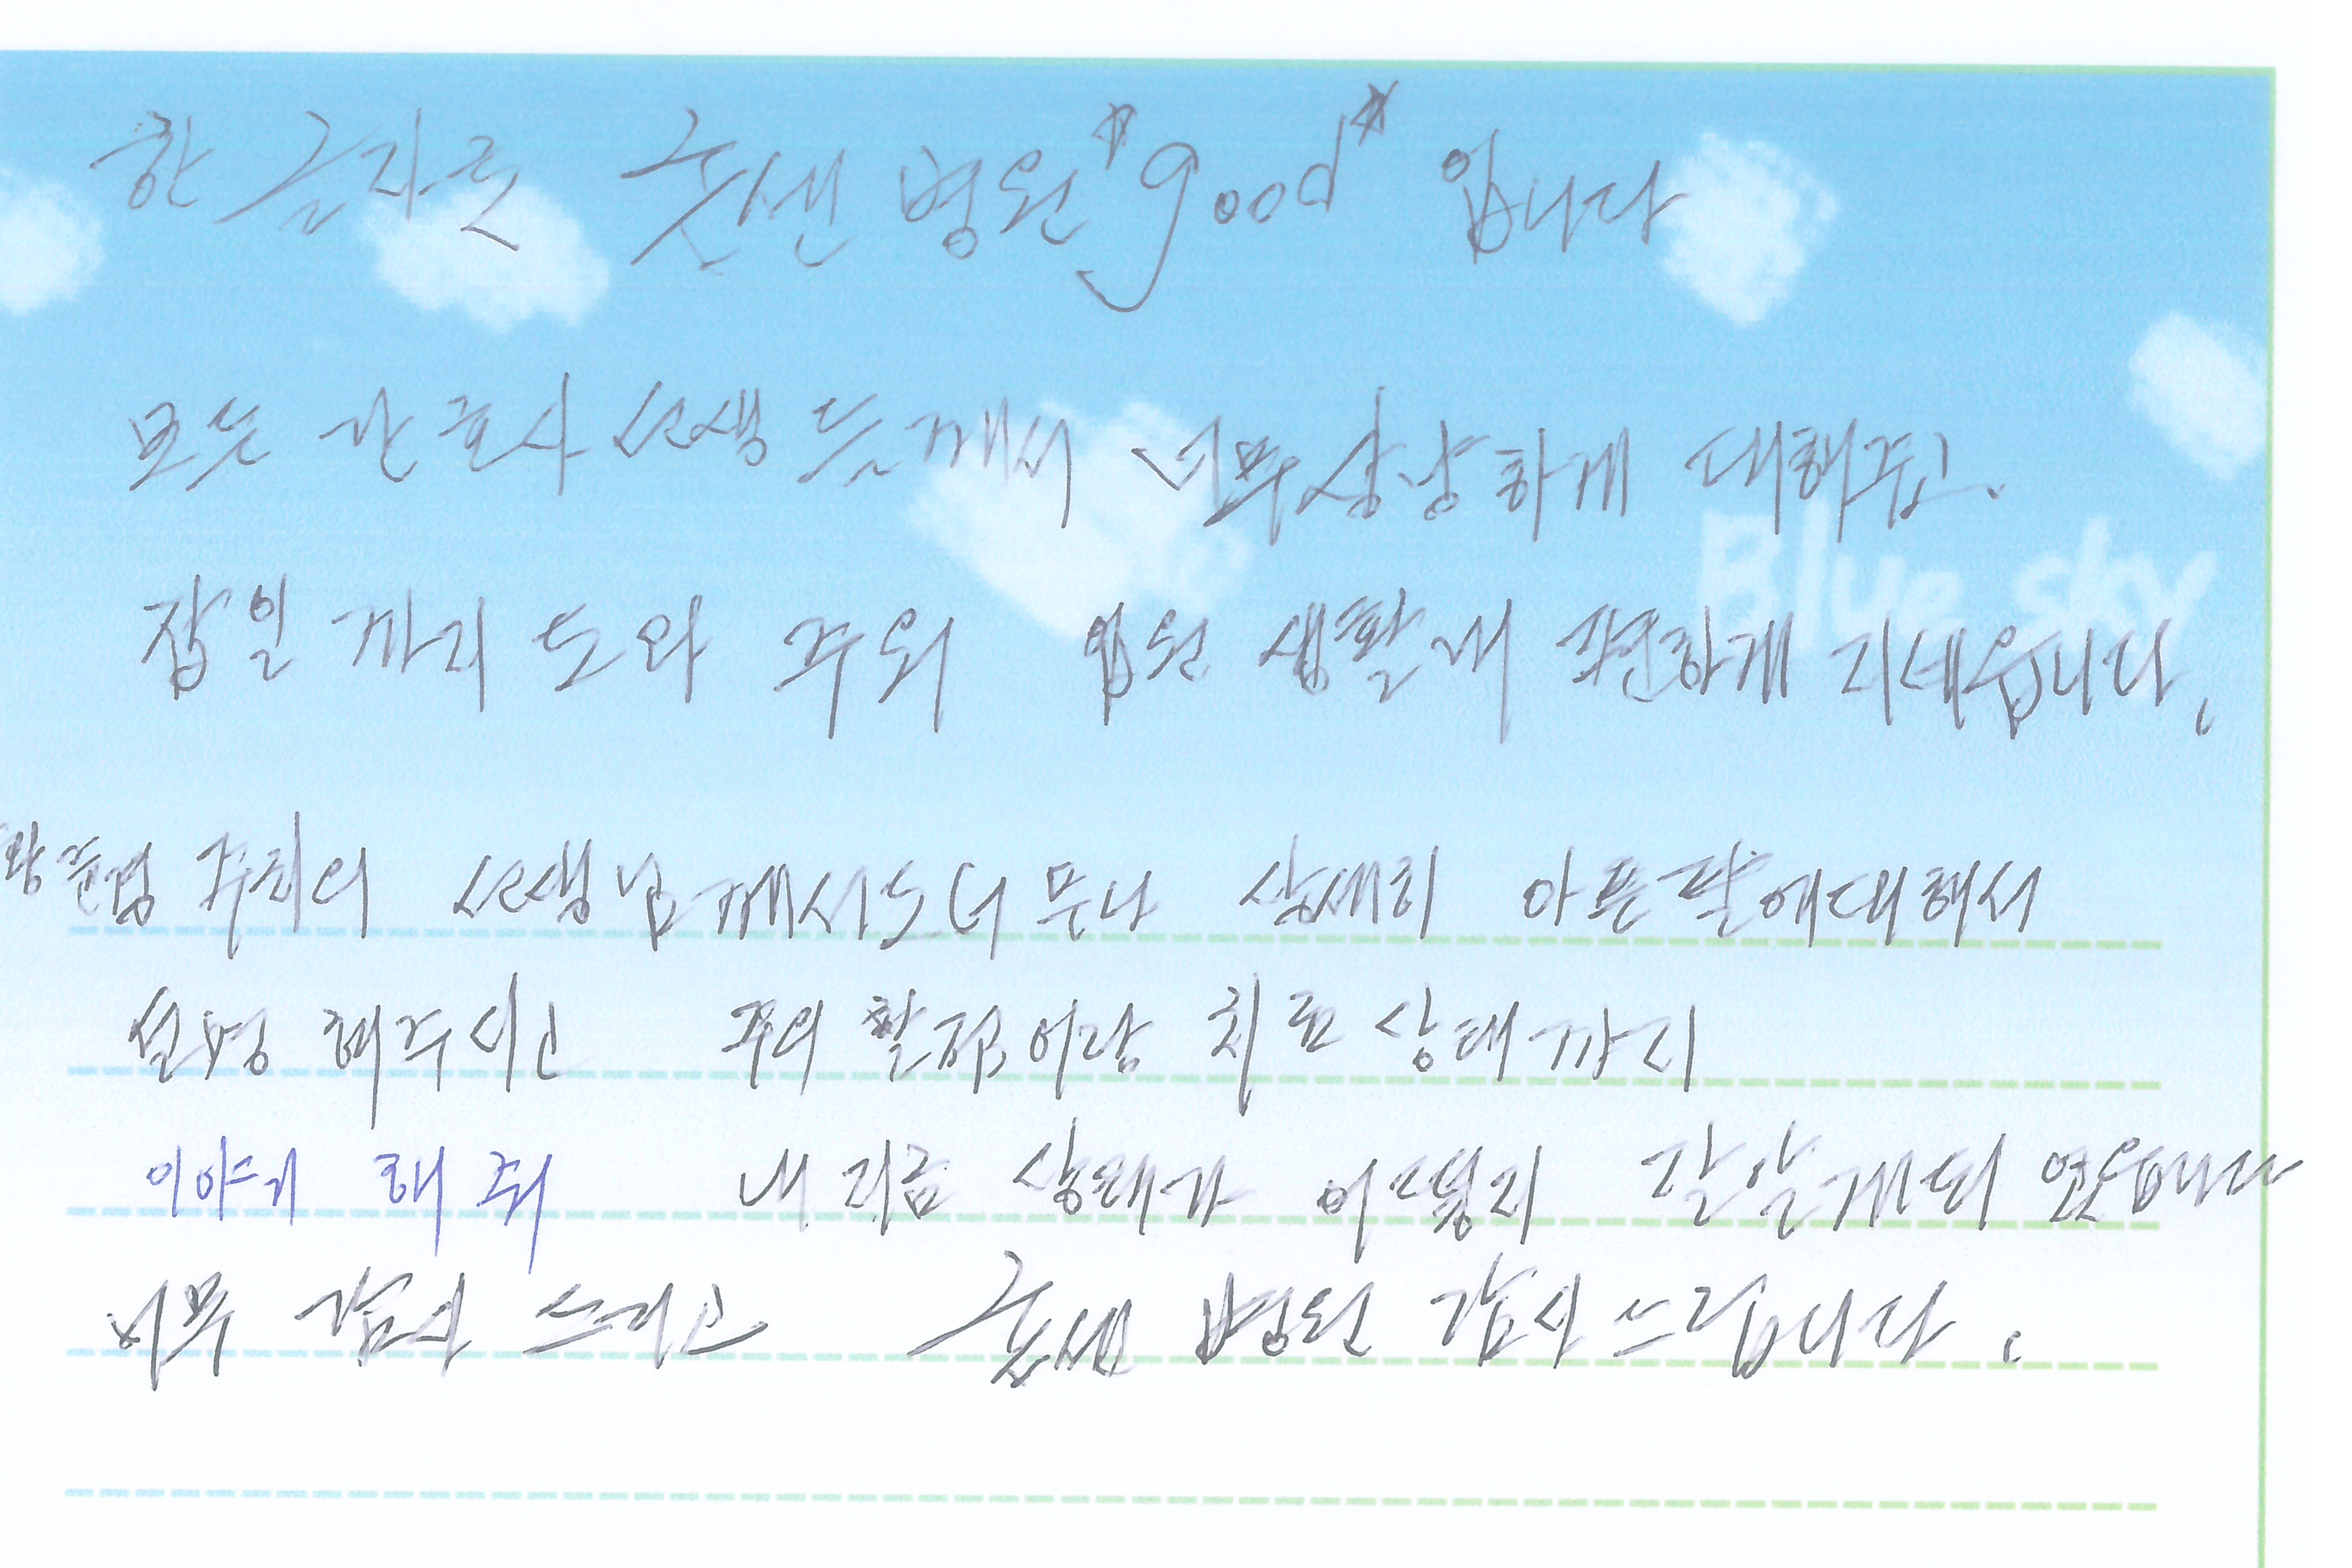 한 글자로 굿센 병원 "good" 입니다
Blue sky
모든 간호사 선생 듯께서 너무 상냥하게 대해주고.
잡일 까지 도와 주워 입원 생활내 편하게 지네습니다.
주치의 선생님께서도 너무나 상세히 아픈팔에대해서
설명 해주시고 주의 할점이랑 치료 상태까지
이야기 해 줘 내 지금 상태가 어떻지 잘 알게되 었습니다
너무 감사 드리고 굿센 병원 감사드립니다.